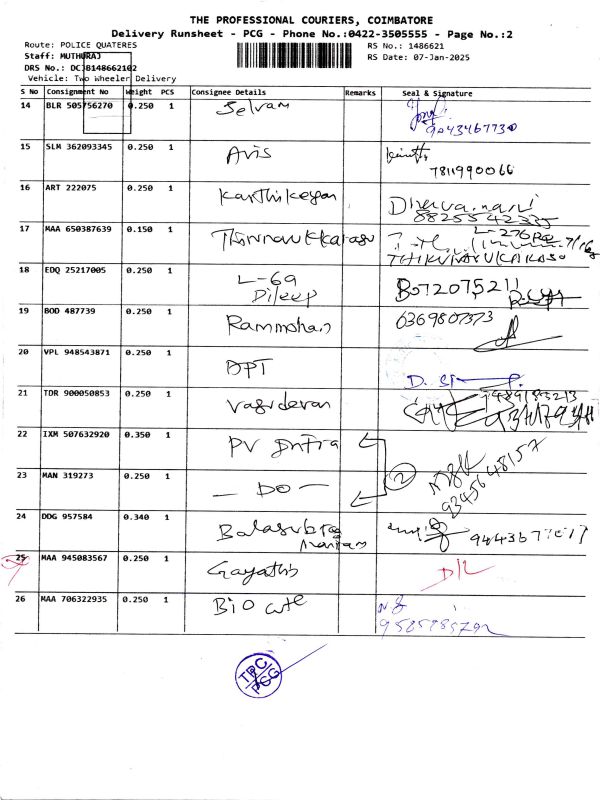 THE PROFESSIONAL COURIERS, COIMBATORE
Delivery Runsheet - PCG - Phone No.:0422-3505555 - Page No.:2
Route: POLICE QUATERES
RS No.: 1486621
Staff: MUTHURAJ
RS Date: 07-Jan-2025
DRS No.: DCJB148662102
Vehicle: Two Wheeler Delivery
S No Consignment No Weight PCS Consignee Details Remarks Seal & Signature
14 BLR 505756270 0.250 1 Selvam
9043467730
15 SLM 362093345 0.250 1 Avis
7811990066
16 ART 222075 0.250 1 Karthikeyan
8825542335
17 MAA 650387639 0.150 1 Thirunavukkarasu
L-276
THIRUNAVUKKARASU
18 EDQ 25217005 0.250 1 L-69
Dileep
19 BOD 487739 0.250 1 Rammohan 6369807373
20 VPL 948543871 0.250 1 DPT
21 TDR 900050853 0.250 1 Vasudevan
22 IXM 507632920 0.350 1 PV
23 MAN 319273 0.250 1 - DO - 2 9345648157
24 DDG 957584 0.340 1
25 MAA 945083567 0.250 1 Gayathri D/L
26 MAA 706322935 0.250 1 Bio
TPC
PCG